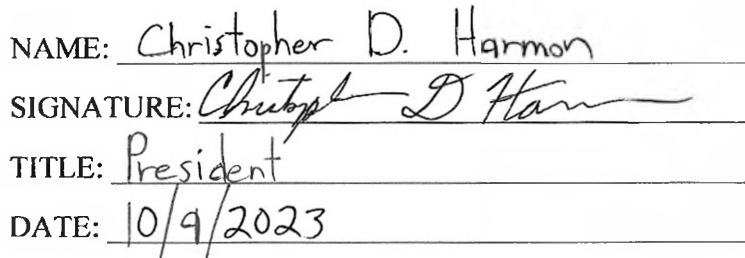 NAME: Christopher D. Harmon
SIGNATURE: Christoph D Har
TITLE: President
DATE: 10/9/2023